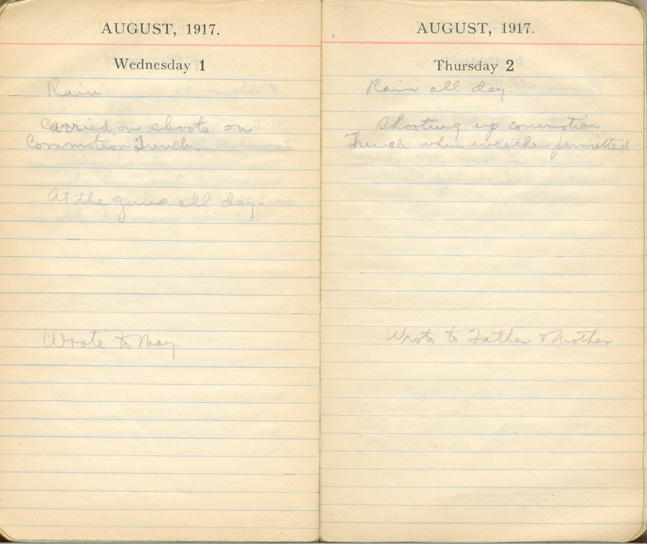 AUGUST, 1917.
Wednesday 1
Rain
Carried on shoots on
Commotion Trench.
At the guns all day.
Wrote to May.
AUGUST, 1917.
Thursday 2
Rain all day.
Shooting up commotion
Trench when weather permitted
Wrote to Father & Mother